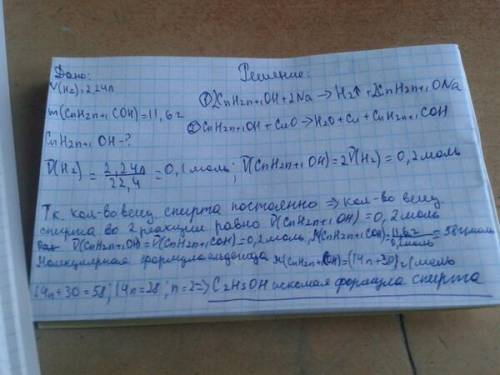 Дано:
Решение:
V(H₂)=2,24л
m(CnH2n+1COH)=11,6г
CnH2n+1OH-?
① 2CnH2n+1OH+2Na→H₂↑+2CnH2n+1ONa
② CnH2n+1OH+CuO→H₂O+Cu+CnH2n+1COH
ν(H₂)=2,24л/22,4=0,1моль; ν(CnH2n+1OH)=2ν(H₂)=0,2моль
Т.к. кол-во вещ. спирта постоянно ⇒ кол-во вещ.
спирта во 2 реакции равно ν(CnH2n+1OH)=0,2моль
ν(CnH2n+1OH)=ν(CnH2n+1COH)=0,2моль, M(CnH2n+1COH)=11,6г/0,2моль=58г/моль
Молекулярная формула альдегида M(CnH2n+1COH)=(14n+30)г/моль
14n+30=58; 14n=28; n=2⇒C2H5OH искомая формула спирта